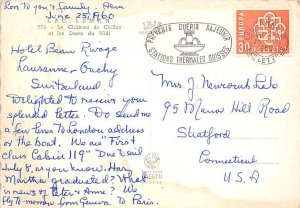 Love to you & Family - Ann
June 25, 1960
LAC LEMAN
Le Château de Chillon
et les Dents du Midi
Hotel Beau Rivage
Lausanne-Ouchy
Switzerland
Delighted to receive your
splendid letter. Do send me
a few lines to London address
or the boat. We are "First
class Cabin 119" Due to sail
July 8, as you know. Has
Martha graduated? What
is news of Peter & Anne? We
fly to-morrow from Geneva to Paris.
PREVENIR GUERIR RAJEUNIR
STATIONS THERMALES SUISSES
EUROPA
30
HELVETIA
Mrs J. Newcomb Lake
95 Manor Hill Road
Stratford
Connecticut
U.S.A